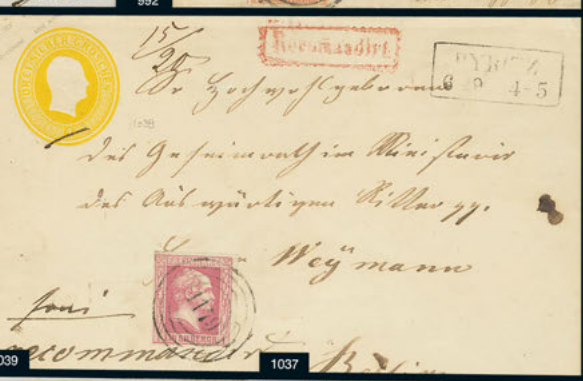 992
15/20
Recomandirt.
PYRITZ
6 9 4-5
Sr Hochwohlgeboren
1039
des Geheimrath im Ministerio
des Auswärtigen Ritter pp.
Herrn Weymann
1179
SILBERGR
frei
recommandirt Berlin
039
1037